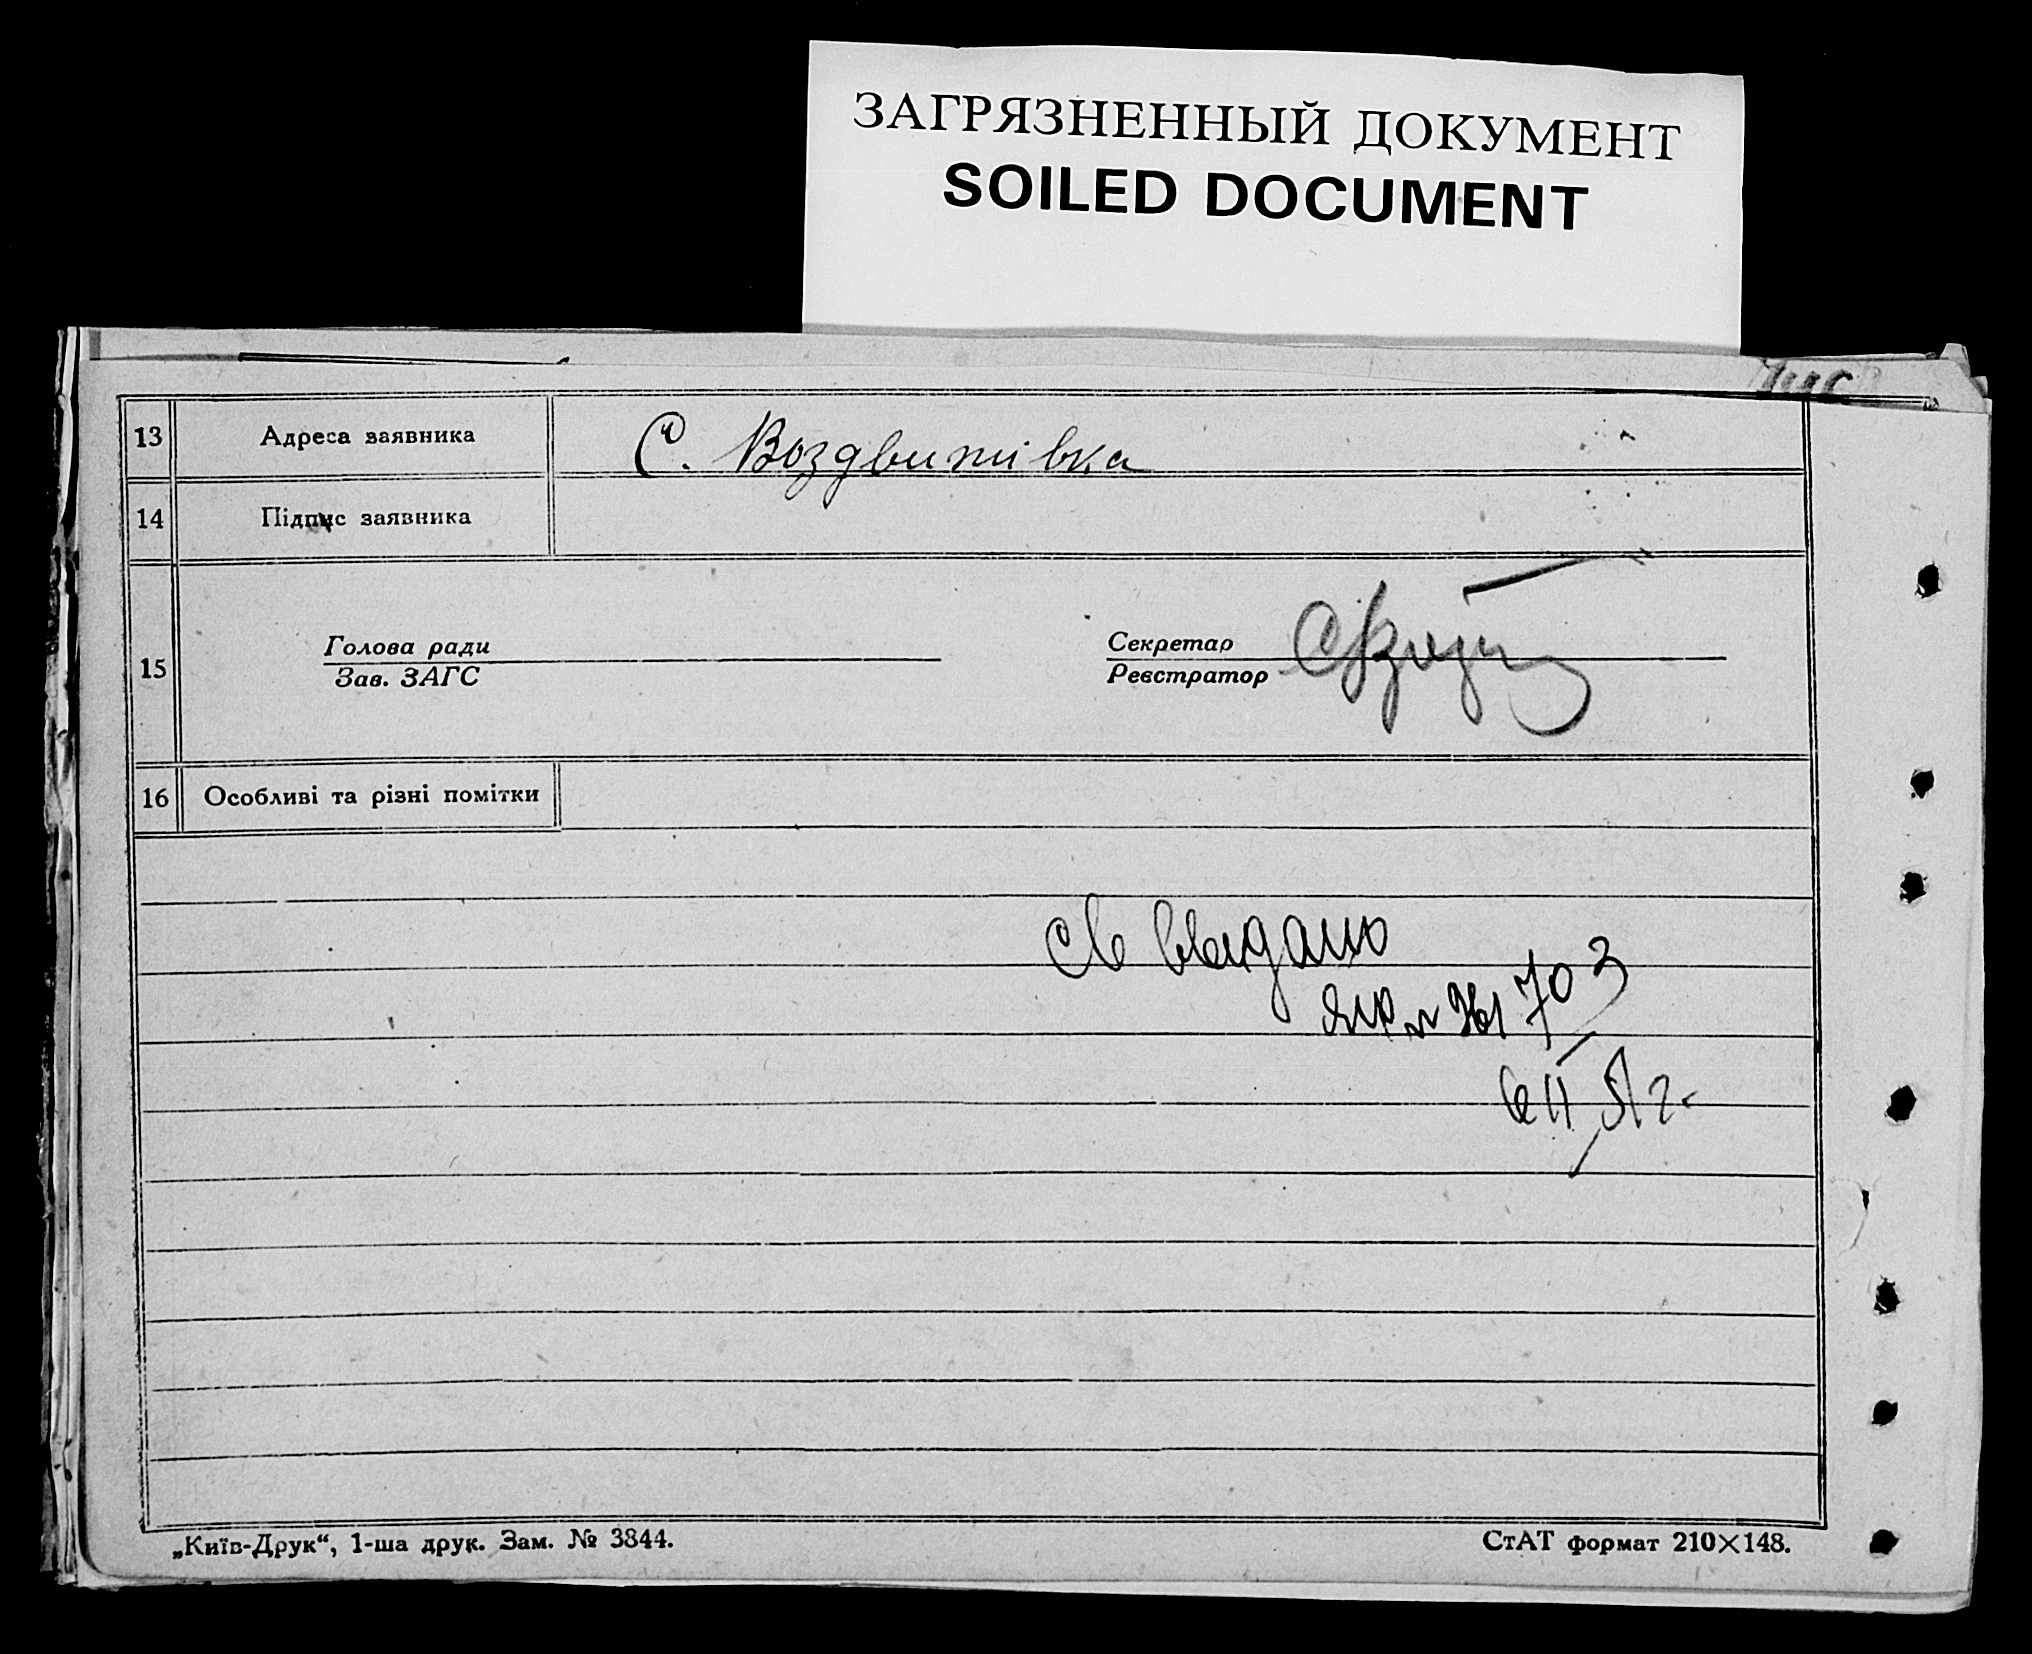 ЗАГРЯЗНЕННЫЙ ДОКУМЕНТ
SOILED DOCUMENT
13 Адреса заявника С. Воздвитівка
14 Підпис заявника
15 Голова ради Секретар
Зав. ЗАГС Реєстратор
16 Особливі та різні помітки
св выдано
703
6 II 51 г.
„Київ-Друк“, 1-ша друк. Зам. № 3844.
СтАТ формат 210×148.